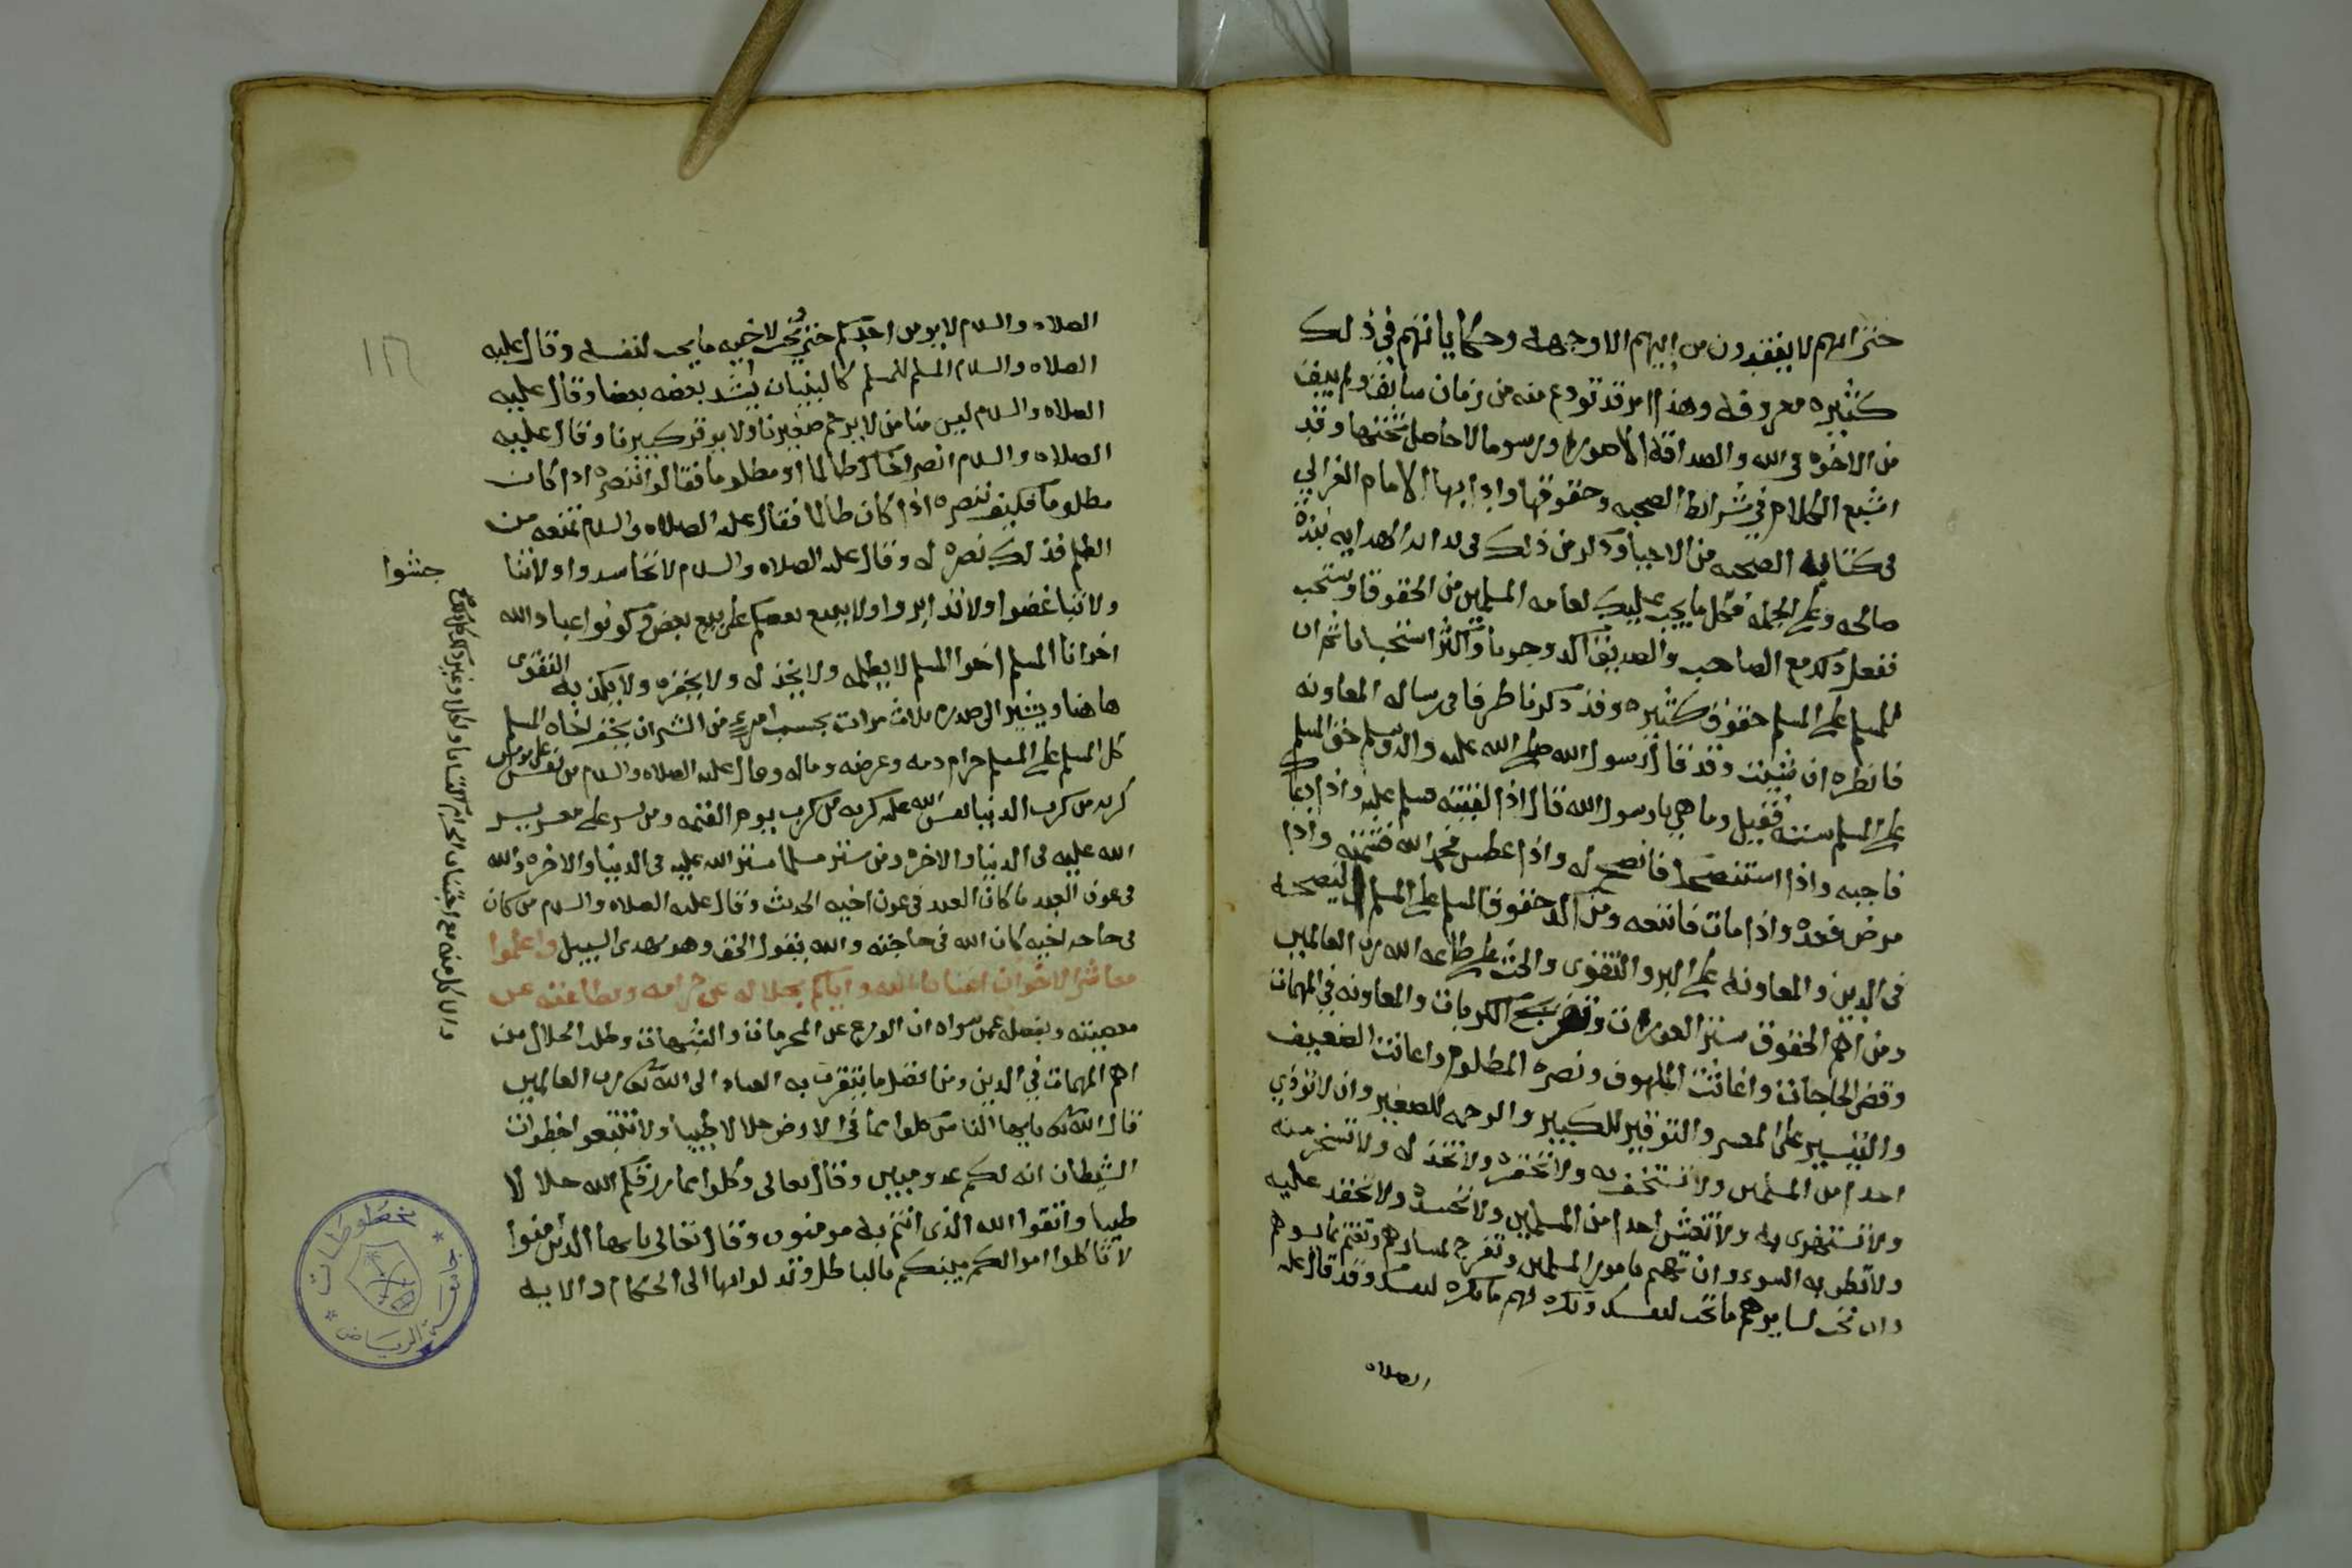 حتى انهم لا يفقدون من ابيهم الا وجهه وحكاياتهم في ذلك
كثيره معروفه وهذا امر قد تودع منه من زمان سابق ولم يبق
من الاخوه في الله والصداقة الا صورا ورسوما لا حاصل تحتها وقد
اشبع الكلام في شرائط الصحبه وحقوقها وادابها الامام الغزالي
في كتابه الصحبه من الاحيا وذكر من ذلك في بداية الهدايه نبذة
صالحه وعلى الجمله فكل ما يجب عليك لعامه المسلمين من الحقوق او يستحب
ففعل ذلك مع الصاحب والصديق اكد وجوبا واكثر استحبابا ثم ان
للمسلم على المسلم حقوق كثيره وقد ذكرنا طرفا في رساله المعاونه
فانظره ان شيت وقد قال رسول الله صلى الله عليه واله وسلم حق المسلم
على المسلم سته فقيل وما هي يا رسول الله قال اذا لقيته فسلم عليه واذا دعاك
فاجبه واذا استنصحك فانصح له واذا عطس فحمد الله فشمته واذا
مرض فعده واذا مات فاتبعه ومن اكد حقوق المسلم على المسلم النصيحه
في الدين والمعاونه على البر والتقوى والحث على طاعه الله رب العالمين
ومن اهم الحقوق ستر العورات وتفريج الكربات والمعاونه في المهمات
وقضى الحاجات واغاثت الملهوف ونصره المظلوم واعانت الضعيف
والتيسير على المعسر والتوقير للكبير والرحمه للصغير وان لا توذي
احدا من المسلمين ولا تستخف به ولا تحقره ولا تخذله ولا تسخر منه
ولا تستهزى به ولا تغش احدا من المسلمين ولا تحسده ولا تحقد عليه
ولا تظن به السوء وان تهتم بامور المسلمين وتفرح لمسارهم وتغتم بما يسوهم
وان تحب لسايرهم ما تحب لنفسك وتكره لهم ما تكره لنفسك وقد قال عليه
الصلاه
الصلاه والسلام لا يومن احدكم حتى يحب لاخيه ما يحب لنفسه وقال عليه
الصلاه والسلام المسلم للمسلم كالبنيان يشد بعضه بعضا وقال عليه
الصلاه والسلام ليس منا من لا يرحم صغيرنا ولا يوقر كبيرنا وقال عليه
الصلاه والسلام انصر اخاك ظالما او مظلوما فقالوا ننصره اذا كان
مظلوما فكيف ننصره اذا كان ظالما فقال عليه الصلاه والسلام تمنعه من
الظلم فذلك نصره له وقال عليه الصلاه والسلام لا تحاسدوا ولا تنا
جشوا
ولا تباغضوا ولا تدابروا ولا يبيع بعضكم على بيع بعض وكونوا عباد الله
اخوانا المسلم اخوا المسلم لا يظلمه ولا يخذله ولا يحقره ولا يكذبه التقوى
هاهنا ويشير الى صدره ثلاث مرات بحسب امرىء من الشر ان يحقر اخاه المسلم
كل المسلم على المسلم حرام دمه وعرضه وماله وقال عليه الصلاه والسلام من نفس على مومن
كربه من كرب الدنيا نفس الله عليه كربه من كرب يوم القيمه ومن يسر على معسر يسر
الله عليه في الدنيا والاخره ومن ستر مسلما ستر الله عليه في الدنيا والاخره والله
في عون العبد ما كان العبد في عون اخيه الحديث وقال عليه الصلاه والسلام من كان
في حاجه اخيه كان الله في حاجته والله يقول الحق وهو يهدى السبيل واعلموا
معاشر الاخوان اغنانا الله واياكم بحلاله عن حرامه وبطاعته عن
معصيته وبفضله عمن سواه ان الورع عن المحرمات والشبهات وطلب الحلال من
اهم المهمات في الدين ومن افضل ما يتقرب به العباد الى الله تعالى رب العالمين
قال الله تعالى يايها الناس كلوا مما في الارض حلالا طيبا ولا تتبعوا خطوات
الشيطان انه لكم عدو مبين وقال تعالى وكلوا مما رزقكم الله حلالا
طيبا واتقوا الله الذى انتم به مومنون وقال تعالى يايها الذين امنوا
لا تاكلوا اموالكم بينكم بالباطل وتدلوا بها الى الحكام والايه
مخطوطات
الرياض